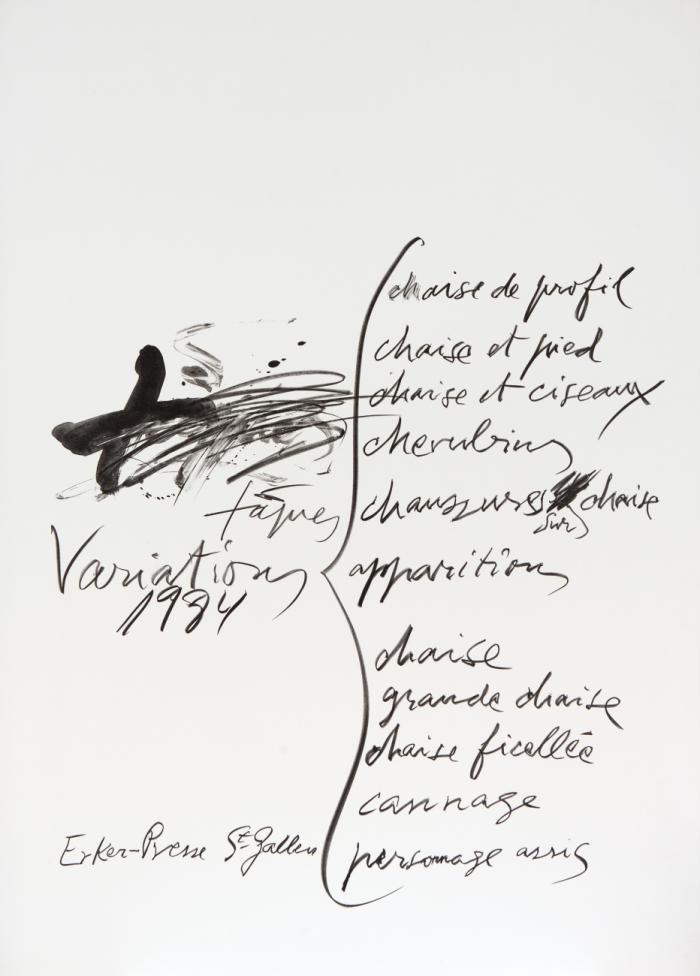 tàpies
Variations
1984
chaise de profil
chaise et pied
chaise et ciseaux
cherubins
chaussures sur chaise
apparitions
chaise
grande chaise
chaise ficellée
cannage
personnage assis
Erker-Presse St-Gallen